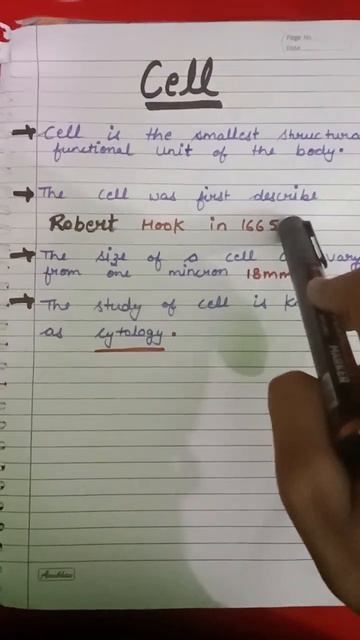 Page No.
Date
Cell
→ Cell is the smallest structura
functional unit of the body.
→ The cell was first describe
Robert Hook in 1665
→ The size of a cell vary
from one mincron 18mm
→ The study of cell is K
as cytology.
MARKER